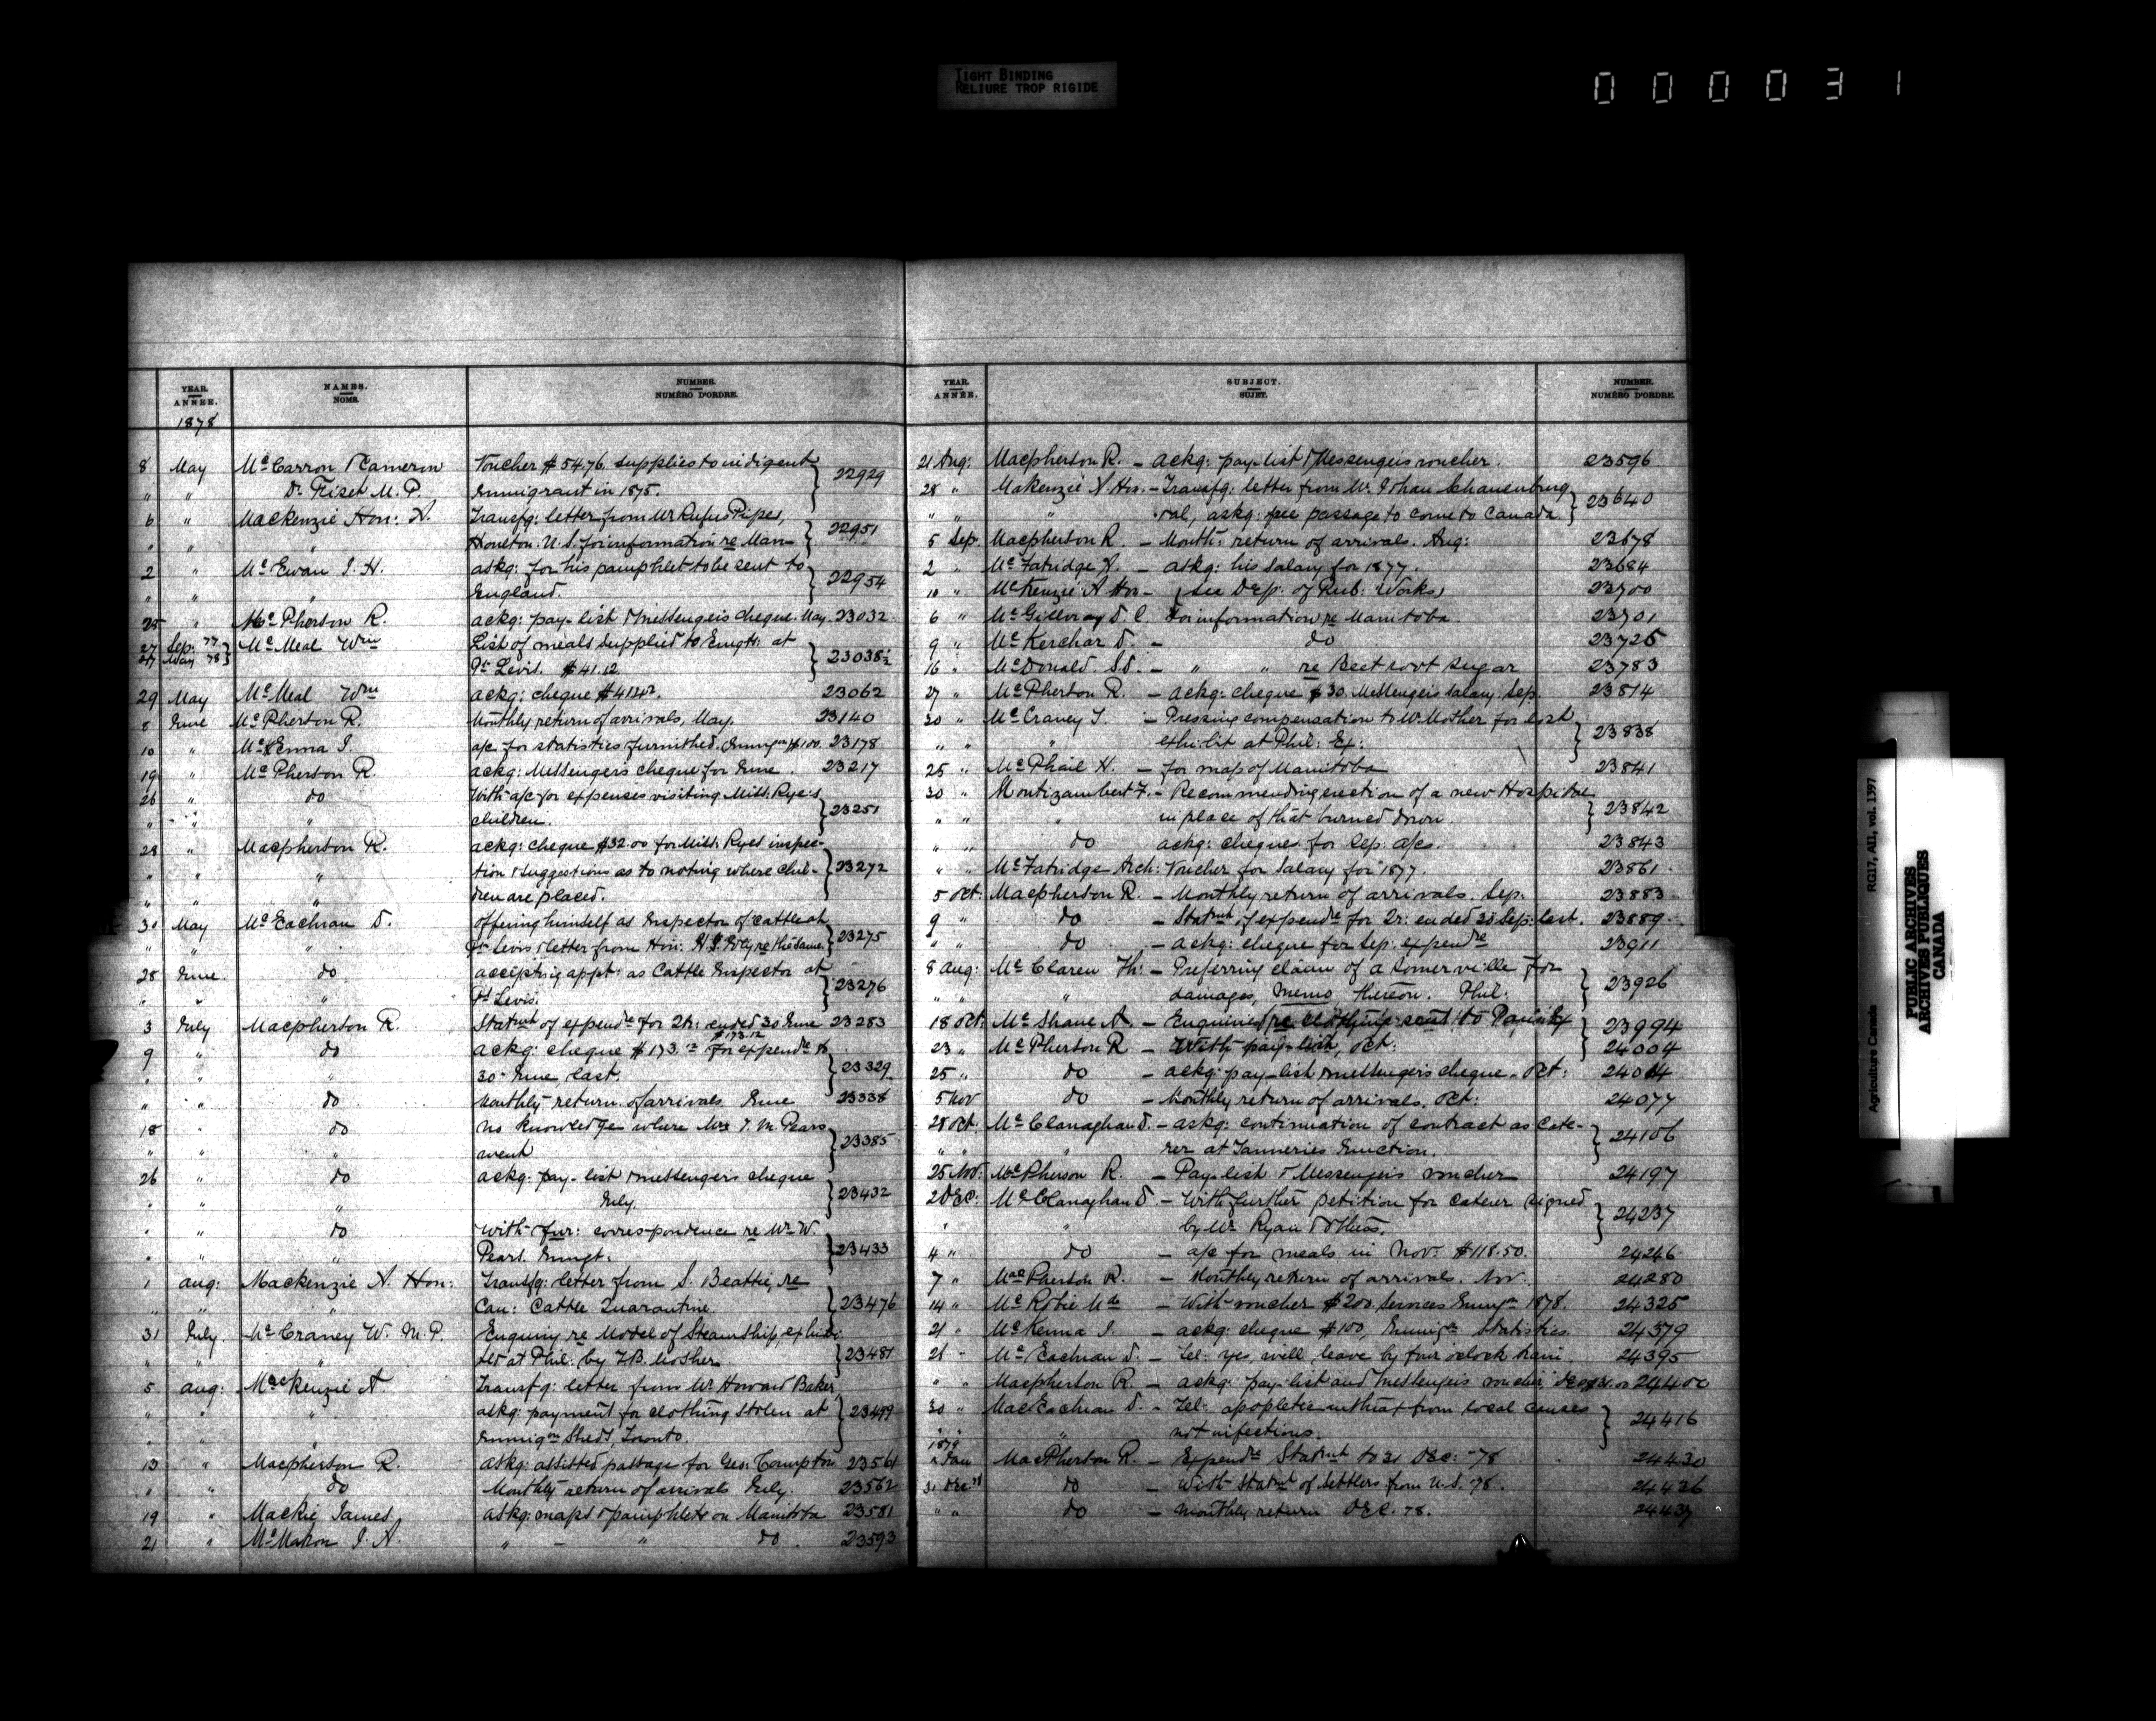 TIGHT BINDING
RELIURE TROP RIGIDE
0 0 0 0 3 1
YEAR. ANNÉE. NAMES. NOMS. NUMBER. NUMÉRO D'ORDRE.
1878
8 May McCarron & Cameron Voucher $54.76 supplies to indigent
" " Dr. Fiset M.P. Immigrant in 1875. 22929
6 " Mackenzie Hon: A. Transfg: letter from Mr Rufus Pipes,
" " " Houlton U.S. for information re Man- 22951
2 " McEwan J. H. askg: for his pamphlet to be sent to
" " " England. 22954
25 " McPherson R. ackg: pay-list & messengers cheque. May. 23032
27 Sep. 77 McMeal Wm List of meals supplied to Emgts: at
27 May 78 Pt Levis. $41.12. 23038½
29 May McMeal Wm ackg: cheque $41.12. 23062
8 June McPherson R. Monthly return of arrivals, May. 23140
10 " McKenna J. a/c for statistics furnished. Immigon $100. 23178
19 " McPherson R. ackg: Messengers cheque for June. 23217
26 " do With a/c for expenses visiting Miss Rye's
" " " children. 23251
28 " Macpherson R. ackg: cheque $32.00 for Miss Ryes inspec-
" " " tion & suggestions as to noting where chil- 23272
" " " dren are placed.
30 May McEachran D. offering himself as Inspector of cattle at
" " " Pt Levis & letter from Hon: H.G. Joly re the same. 23275
28 June do accepting appt: as Cattle Inspector at
" " " Pt Levis. 23276
3 July Macpherson R. Statmt of expendre for 2r: ended 30 June 23283
9 " do ackg: cheque $173.12 $173.12 for expendre to
" " " 30 June last. 23329
" " do Monthly return of arrivals June 23338
18 " do no knowledge where Mrs T. M. Pears
" " " went 23385
26 " do ackg: pay-list & messengers cheque
" " " July. 23432
" " do With fur: correspondence re Mr W.
" " " Pears. Immgt: 23433
1 aug: Mackenzie A. Hon: Transfg: letter from S. Beattie, re
" " " Can: Cattle Quarantine. 23476
31 July. McCraney W. M.P. Enquiry re Model of Steamship exhibi-
" " " ted at Phil: by J.B. Mosher 23481
5 aug: MacKenzie A. Transfg: letter from Mr Howard Baker
" " " askg: payment for clothing stolen at 23499
" " " Immigon Sheds, Toronto.
13 " Macpherson R. askg: assisted passage for Geo: Compton 23561
" " do Monthly return of arrivals July. 23562
19 " Mackie James askg: maps & pamphlets on Manitoba 23581
21 " McMahon J. A. " " do 23593
YEAR. ANNÉE. SUBJECT. SUJET. NUMBER. NUMÉRO D'ORDRE.
21 Aug: Macpherson R. - ackg: pay-list & Messengers voucher. 23596
28 " Makenzie A. Hon. - Transfg: letter from Mr. Johan Schauenburg
" " " askg: free passage to come to Canada. 23640
5 Sep. Macpherson R. - Month: return of arrivals. Aug: 23678
2 " McFatridge A. - askg: his salary for 1877. 23684
10 " McKenzie A Hon - (see Dep: of Pub: Works) 23700
6 " McGillvray D. C. For information re Manitoba 23701
9 " McKerchar D. - do 23725
16 " McDonald S.D. - " " re Beet root sugar 23783
27 " McPherson R. - ackg: cheque $30. Messengers salary. Sep. 23814
20 " McCraney T. - Pressing compensation to Mr Mosher for lost
" " " exhibit at Phil: Ex: 23838
25 " McPhail H. - for map of Manitoba 23841
30 " Montizambert F. - Recommending erection of a new Hospital
" " " in place of that burned down. 23842
" " do ackg: cheques for Sep: a/cs. 23843
" " McFatridge Arch: Voucher for salary for 1877. 23861
5 oct: Macpherson R. - Monthly return of arrivals. Sep. 23883
9 " do - Statmt of expendre for 2r: ended 30 Sep: last. 23889
" " do - ackg: cheque for Sep. expendre 23911
8 aug: McClaren Th: - Preferring claim of A Somerville for
" " " damages, memo thereon. Phil. 23926
18 oct: McShane A. - Enquiries re clothing sent to Paris Ex 23994
23 " McPherson R - With pay-list, Oct: 24004
25 " do - ackg: pay-list & messengers cheque - Oct: 24014
5 Nov do - Monthly return of arrivals. Oct: 24077
28 Oct. McClanaghan D. - askg: continuation of contract as Cate-
" " " rer at Tanneries Junction. 24106
25 Nov. MacPherson R. - Pay-list & Messengers voucher 24197
2 Dec: McClanaghan D. - With further petition for caterer signed
" " by Mr Ryan & others. 24237
4 " do - a/c for meals in Nov: $118.50. 24246
7 " MacPherson R. - Monthly return of arrivals. Nov. 24280
14 " McRobie - With voucher $200. services Immigon 1878. 24325
21 " McKenna J. - ackg: cheque $100, Immign Statistics 24379
21 " McEachran D. - Tel: yes, will leave by four oclock train 24395
" " Macpherson R. - ackg: pay-list and Messengers voucher, Dec: 24400
30 " MacEachran D. - Tel: from local causes
" " " not infectious. 24416
1879
2 Jan MacPherson R. - Expendre Statmt to 31 Dec: -78 24430
31 Dec. 78 do - With Statmt of Settlers from U.S. '78. 24436
" " do - monthly return Dec. 78. 24437
Agriculture Canada RG17, AII, vol. 1397
PUBLIC ARCHIVES
ARCHIVES PUBLIQUES
CANADA